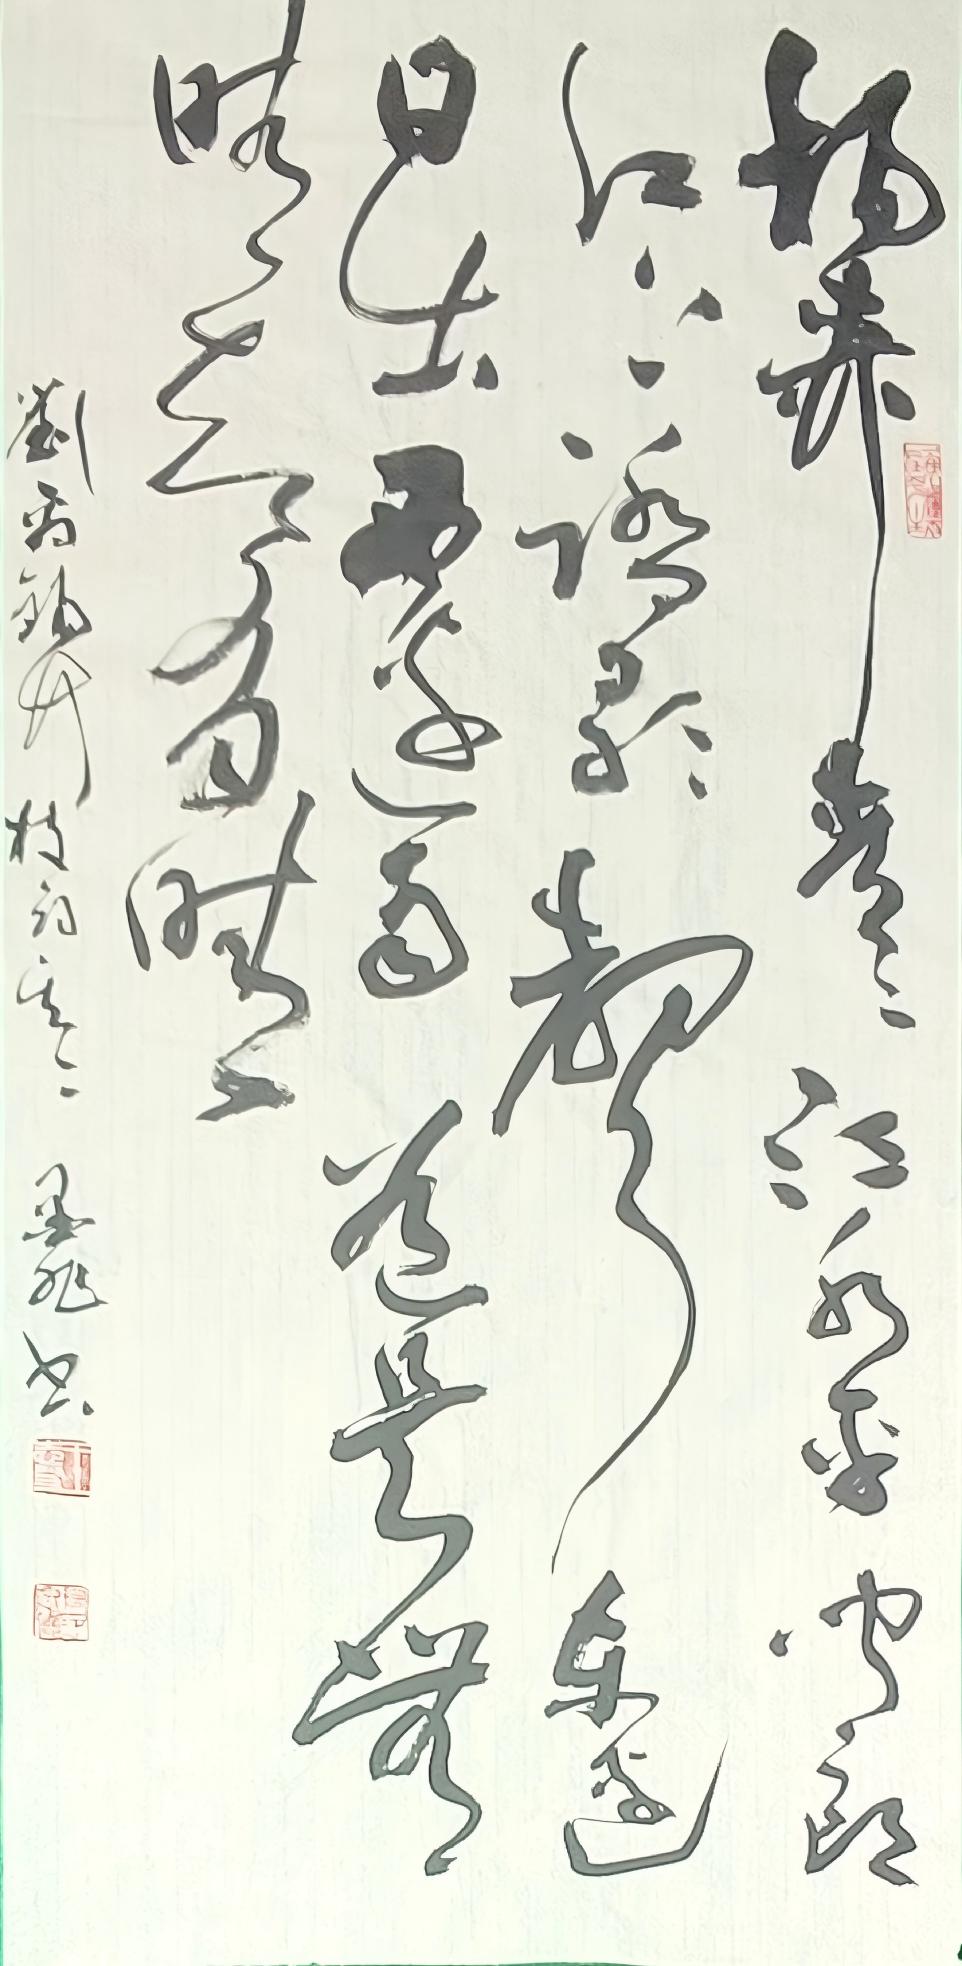 楊柳青青江水平聞郎
江上踏歌聲東邊
日出西邊雨道是無
晴卻有晴
劉禹錫竹枝詞 墨 書